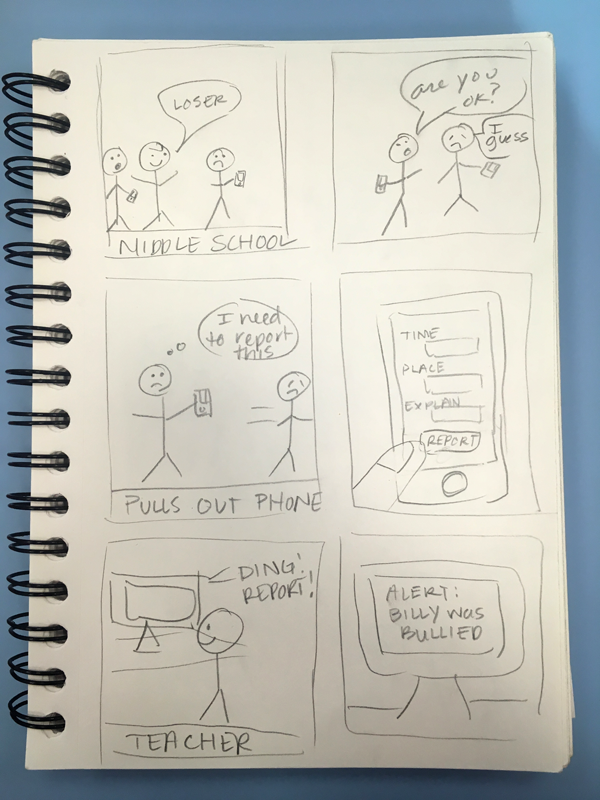 LOSER
MIDDLE SCHOOL
are you
OK?
I
guess
I need
to report
this
PULLS OUT PHONE
TIME
PLACE
EXPLAIN
REPORT
DING!
REPORT!
TEACHER
ALERT:
BILLY WAS
BULLIED